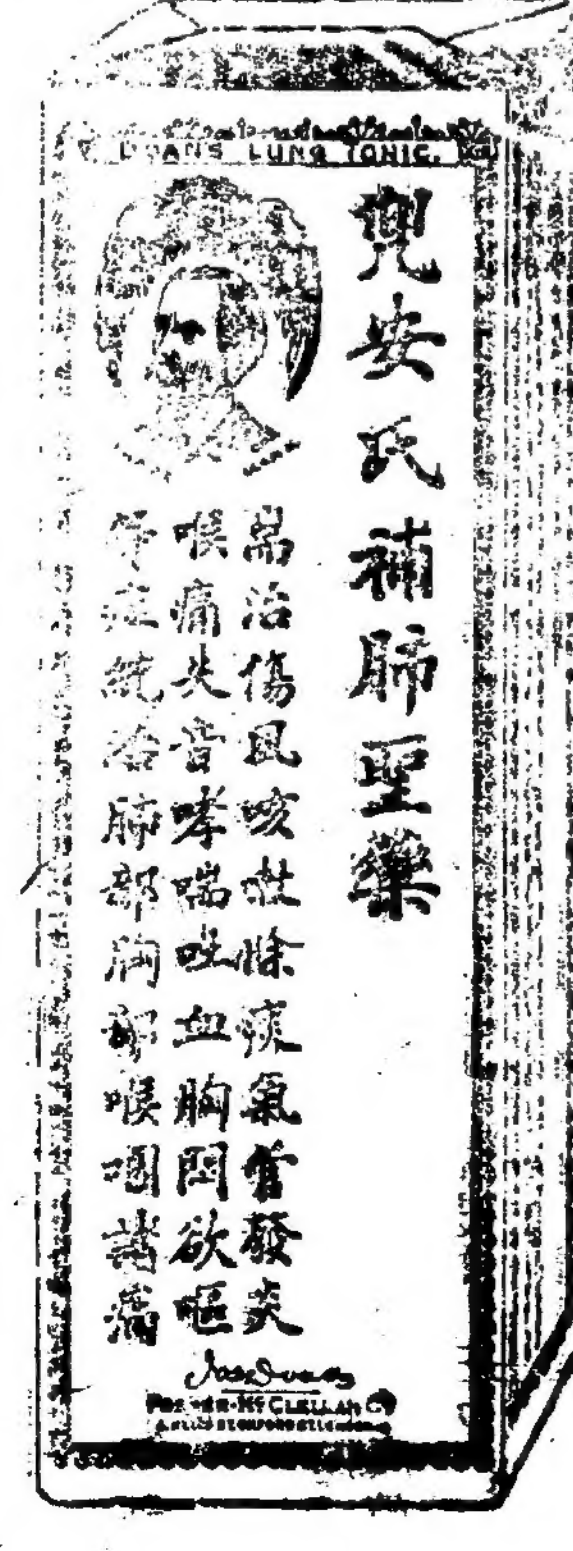 DOAN'S LUNG TONIC.
兜安氏補肺聖藥
治傷風咳除痰氣管發炎
喉痛失音哮喘吐血胸悶欲嘔
等症統治肺部胸部喉咽諸痛
Jas Doan
FOSTER-McCLELLAN Co